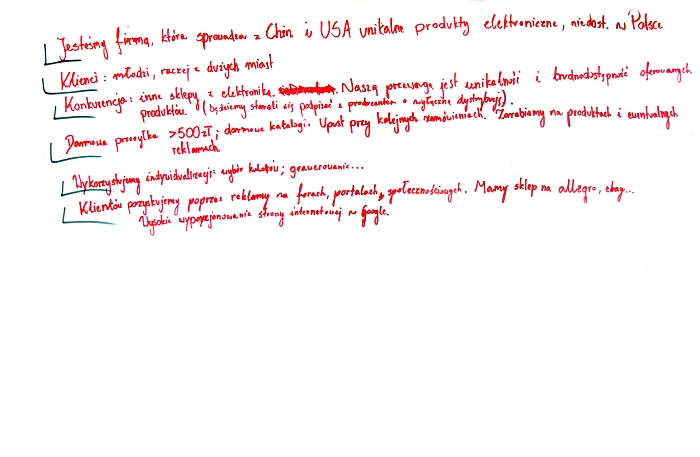 Jesteśmy firmą, która sprowadza z Chin i USA unikalne produkty elektroniczne, niedost. w Polsce
Klienci: młodzi, raczej z dużych miast
Konkurencja: inne sklepy z elektroniką. Naszą przewagą jest unikalność i trudnodostępność oferowanych
produktów. (będziemy starali się podpisać z producentem o wyłącznej dystrybucji).
Darmowa przesyłka >500zł; darmowe katalogi. Upust przy kolejnych zamówieniach. Zarabiamy na produktach i ewentualnych
reklamach.
Wykorzystujemy indywidualizację: wybór kolorów; grawerowanie...
Klientów pozyskujemy poprzez reklamy na forach, portalach społecznościowych. Mamy sklep na allegro, ebay...
Wysokie wypozycjonowanie strony internetowej w Google.